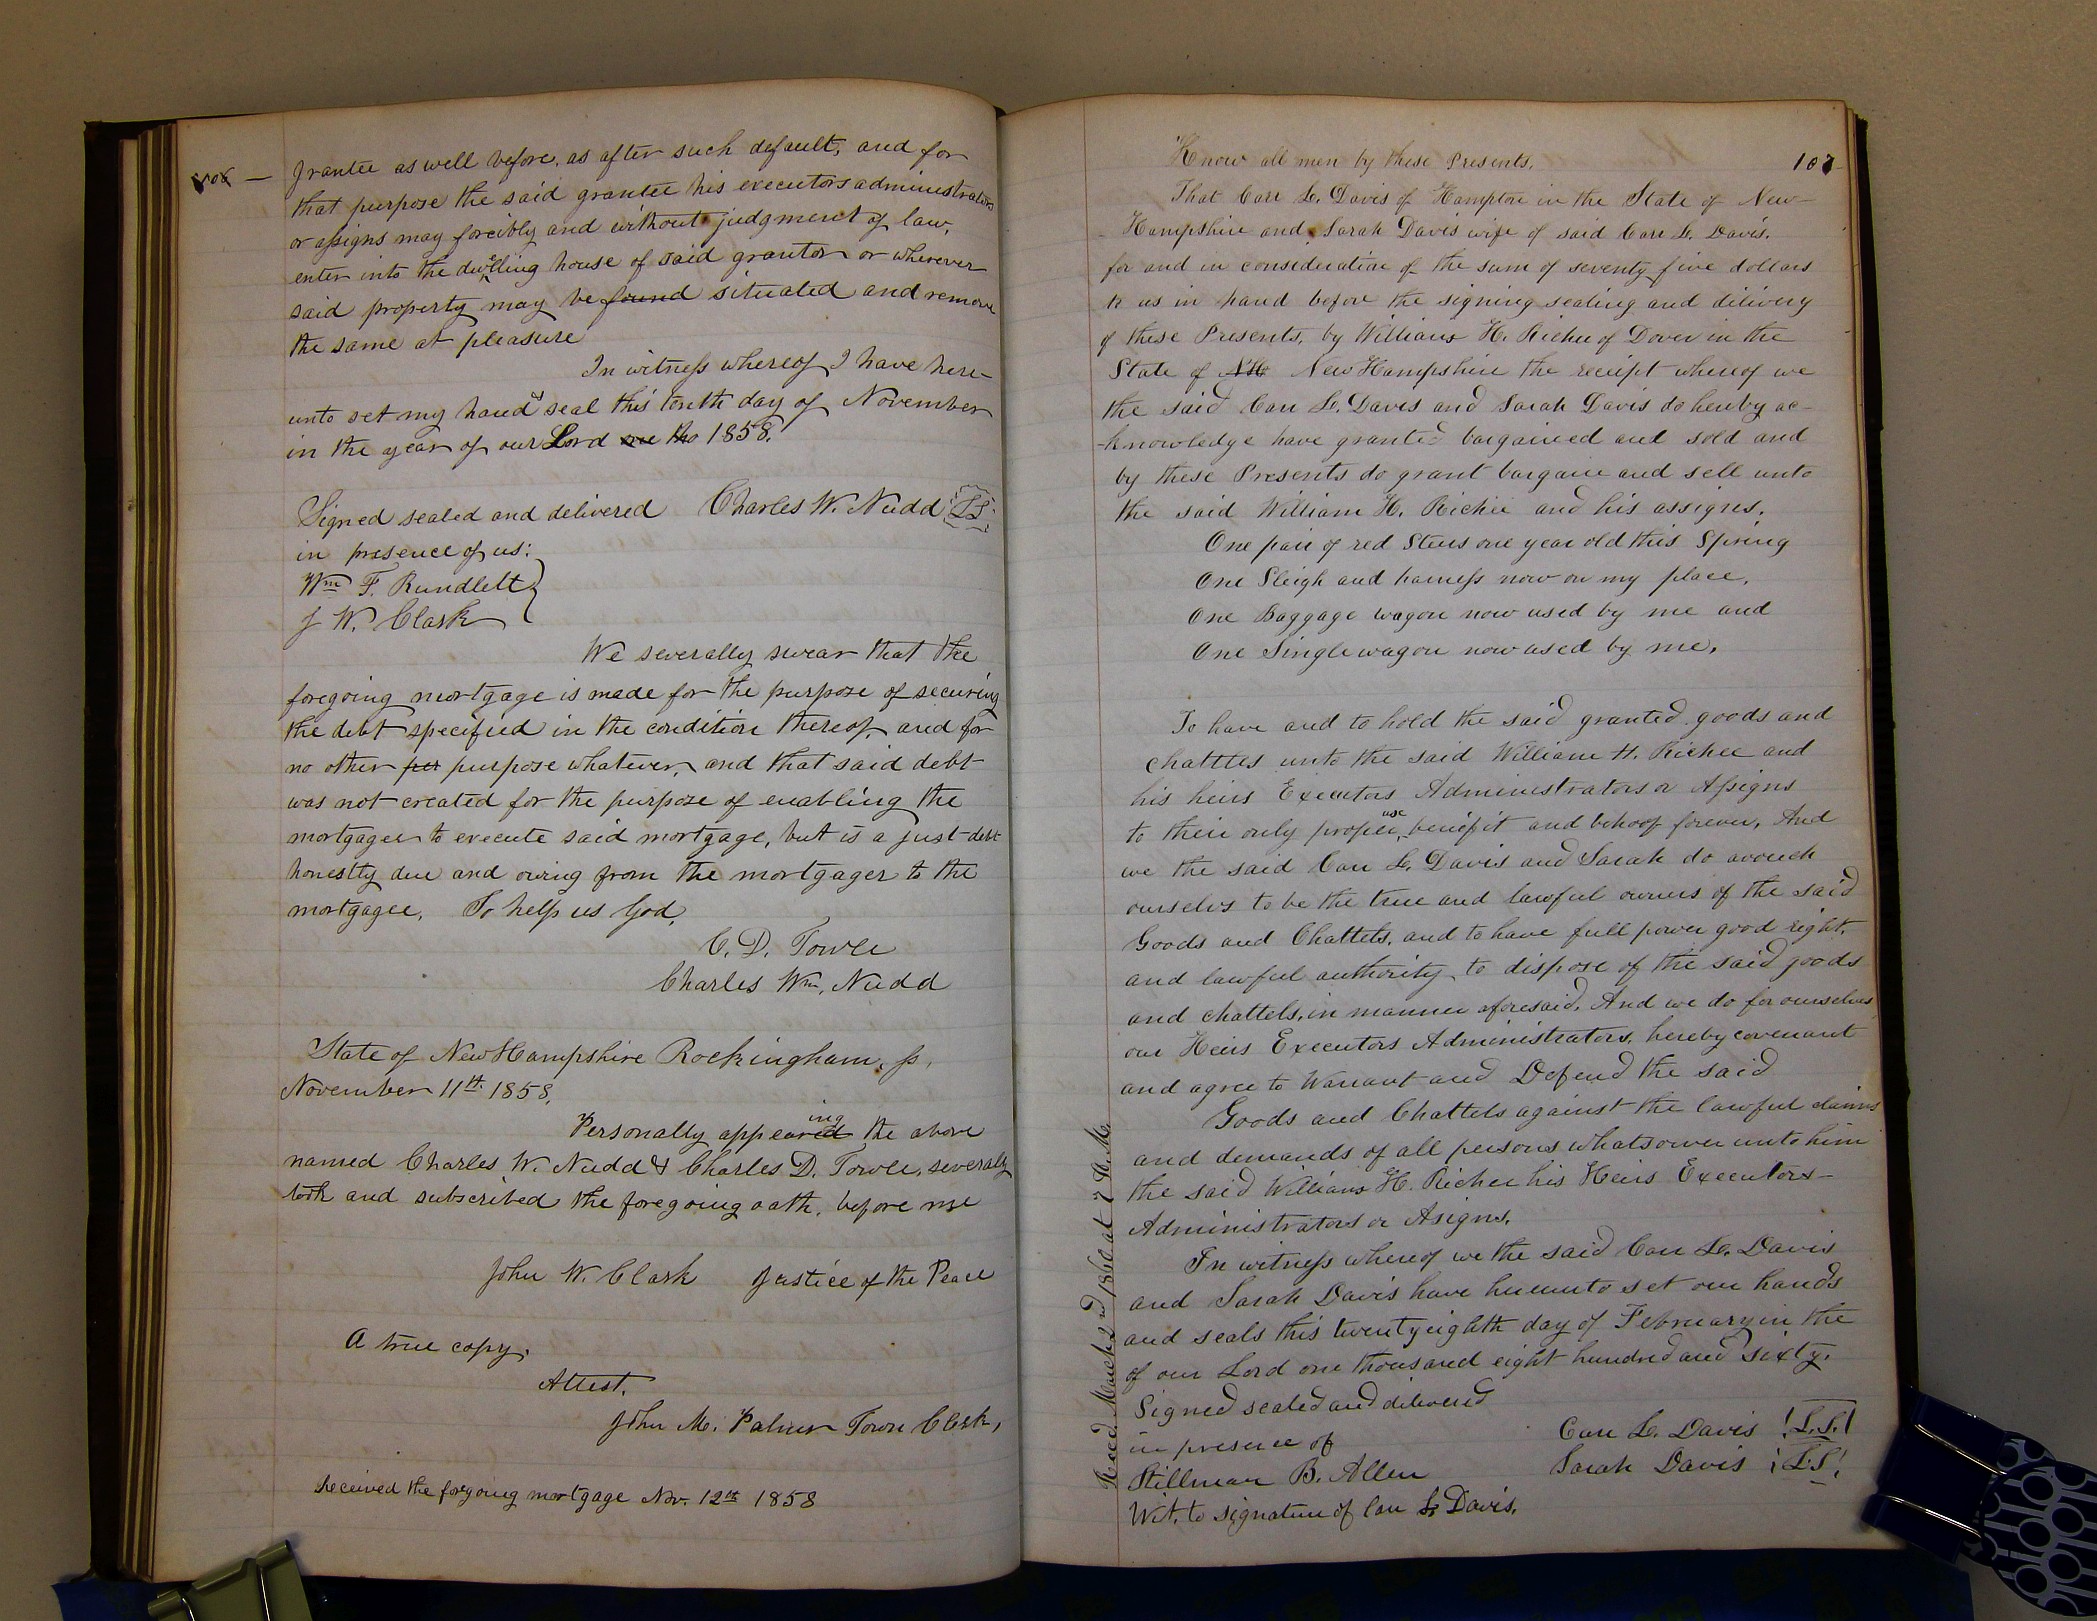 grantee as well before, as after such default, and for
that purpose the said grantee his executors administrators
or assigns may forcibly and without judgment of law,
enter into the dwelling house of said grantor or wherever
said property may be found situated and remove
the same at pleasure
In witness whereof I have here-
unto set my hand & seal this tenth day of November
in the year of our Lord one tho 1858.
Signed sealed and delivered Charles W. Nudd LS
in presence of us:
Wm F. Rundlett
J W. Clark
We severally swear that the
foregoing mortgage is made for the purpose of securing
the debt specified in the condition thereof, and for
no other per purpose whatever, and that said debt
was not created for the purpose of enabling the
mortgager to execute said mortgage, but is a just debt
honestly due and owing from the mortgager to the
mortgagee. So help us God,
C. D. Towle
Charles Wm. Nudd
State of New Hampshire Rockingham, ss.
November 11th 1858.
Personally appearing the above
named Charles W. Nudd & Charles D. Towle, severally
took and subscribed the foregoing oath, before me
John W. Clark Justice of the Peace
A true copy,
Attest,
John M. Palmer Town Clerk,
Received the foregoing mortgage Nov. 12th 1858
107
Know all men by these Presents,
That Carr L. Davis of Hampton in the State of New-
Hampshire and Sarah Davis wife of said Carr L. Davis.
for and in consideration of the sum of seventy five dollars
to us in hand before the signing sealing and dilivery
of these Presents, by William H. Richee of Dover in the
State of NH New Hampshire the receipt whereof we
the said Carr L. Davis and Sarah Davis do hereby ac-
-knowledge have granted bargained and sold and
by these Presents do grant bargain and sell unto
the said William H. Richee and his assigns.
One pair of red Steers one year old this Spring
One Sleigh and harness now on my place,
One Baggage wagon now used by me and
One Single wagon now used by me,
To have and to hold the said granted goods and
chattles unto the said William H. Richee and
his heirs Executors Administrators or Assigns
to their only proper use, benefit and behoof forever, And
we the said Carr L. Davis and Sarah do avouch
ourselvs to be the true and lawful owners of the said
Goods and Chattels, and to have full power good right,
and lawful authority, to dispose of the said goods
and chattels, in manner aforesaid, And we do for ourselves
our Heirs Executors Administrators, hereby covenant
and agree to Warrant and Defend the said
Goods and Chattels against the lawful claims
and demands of all persons whatsoever unto him
the said William H. Richee his Heirs Executors-
Administrators or Asigns,
In witness whereof we the said Carr L. Davis
and Sarah Davis have hereunto set our hands
and seals this twenty eighth day of February in the
of our Lord one thousand eight hundred and sixty.
Signed sealed and delivered
in presence of Carr L. Davis L.S.
Stillman B. Allen Sarah Davis L.S
Wit. to signature of Carr L. Davis,
Recd. March 2nd 1860 at 7 A. M.